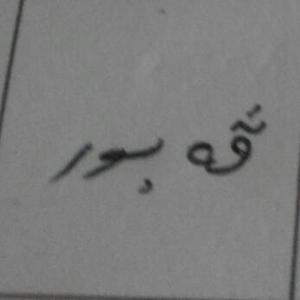 ڤه بور